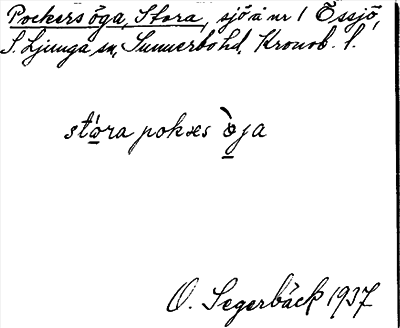 Pockers öga, Stora, sjö å nr 1 Össjö,
S. Ljunga sn, Sunnerbo hd. Kronob. l.
stora pokæs òja
O. Segerbäck 1937